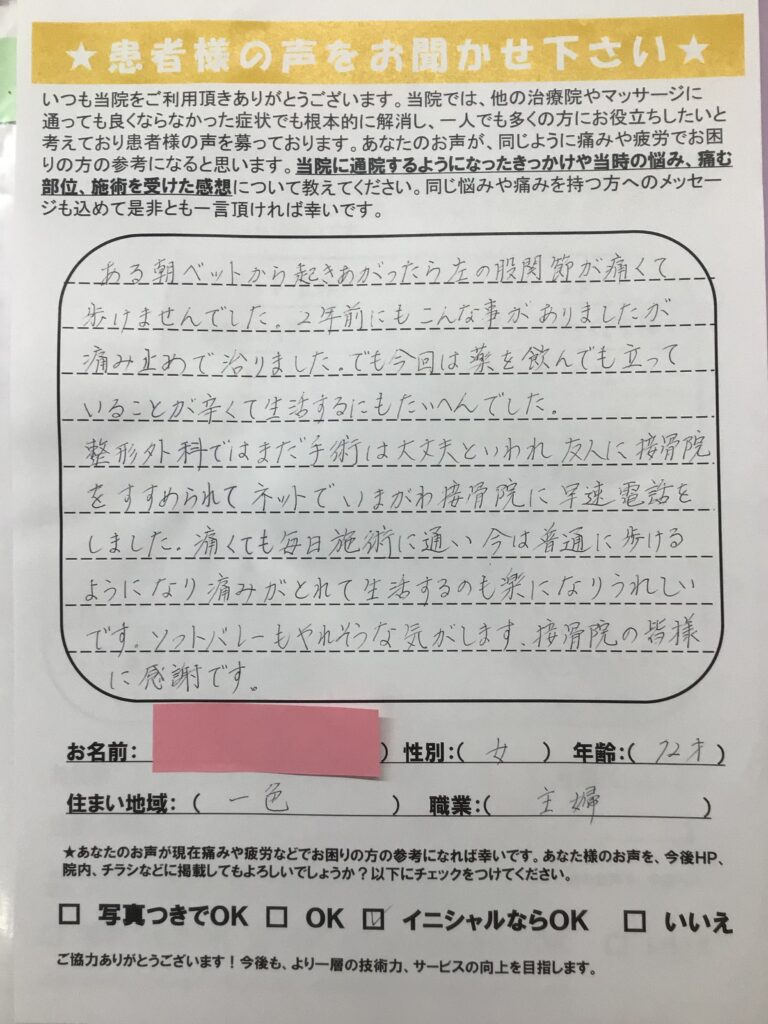 ★患者様の声をお聞かせ下さい★
いつも当院をご利用頂きありがとうございます。当院では、他の治療院やマッサージに
通っても良くならなかった症状でも根本的に解消し、一人でも多くの方にお役立ちしたいと
考えており患者様の声を募っております。あなたのお声が、同じように痛みや疲労でお困
りの方の参考になると思います。当院に通院するようになったきっかけや当時の悩み、痛む
部位、施術を受けた感想について教えてください。同じ悩みや痛みを持つ方へのメッセー
ジも込めて是非とも一言頂ければ幸いです。
ある朝ベットから起きあがったら左の股関節が痛くて
歩けませんでした。2年前にもこんな事がありましたが
痛み止めで治りました。でも今回は薬を飲んでも立って
いることが辛くて生活するにもたいへんでした。
整形外科ではまだ手術は大丈夫といわれ友人に接骨院
をすすめられてネットでいまがわ接骨院に早速電話を
しました。痛くても毎日施術に通い今は普通に歩ける
ようになり痛みがとれて生活するのも楽になりうれしい
です。ソフトバレーもやれそうな気がします、接骨院の皆様
に感謝です。
お名前: ) 性別:( 女 ) 年齢:( 72才 )
住まい地域: ( 一色 ) 職業:( 主婦 )
★あなたのお声が現在痛みや疲労などでお困りの方の参考になれば幸いです。あなた様のお声を、今後HP、
院内、チラシなどに掲載してもよろしいでしょうか?以下にチェックをつけてください。
□ 写真つきでOK □ OK ☑ イニシャルならOK □ いいえ
ご協力ありがとうございます！今後も、より一層の技術力、サービスの向上を目指します。